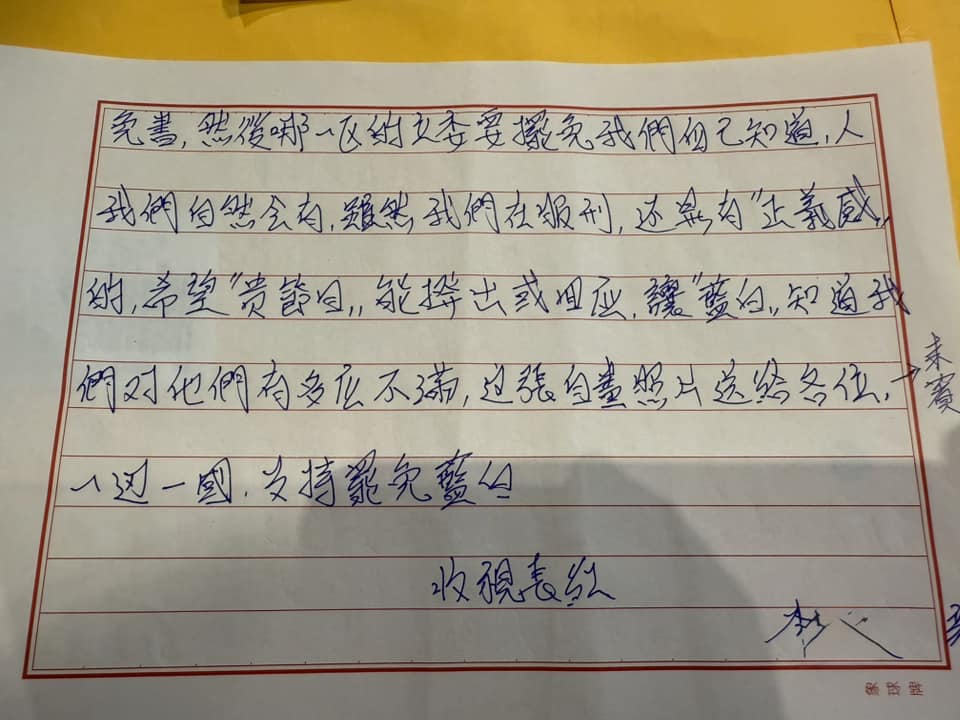 免書,然後哪一区的立委要擺免我們自己知道,人
我們自然会有,雖然我們在服刑,还是有"正義感"
的,希望"贵節目",能撥出或回应,讓"藍白"知道我
們对他們有多広不滿,这張自畫照片送給各位,→未賽
一边一國,支持罷免藍白
收視長紅
李